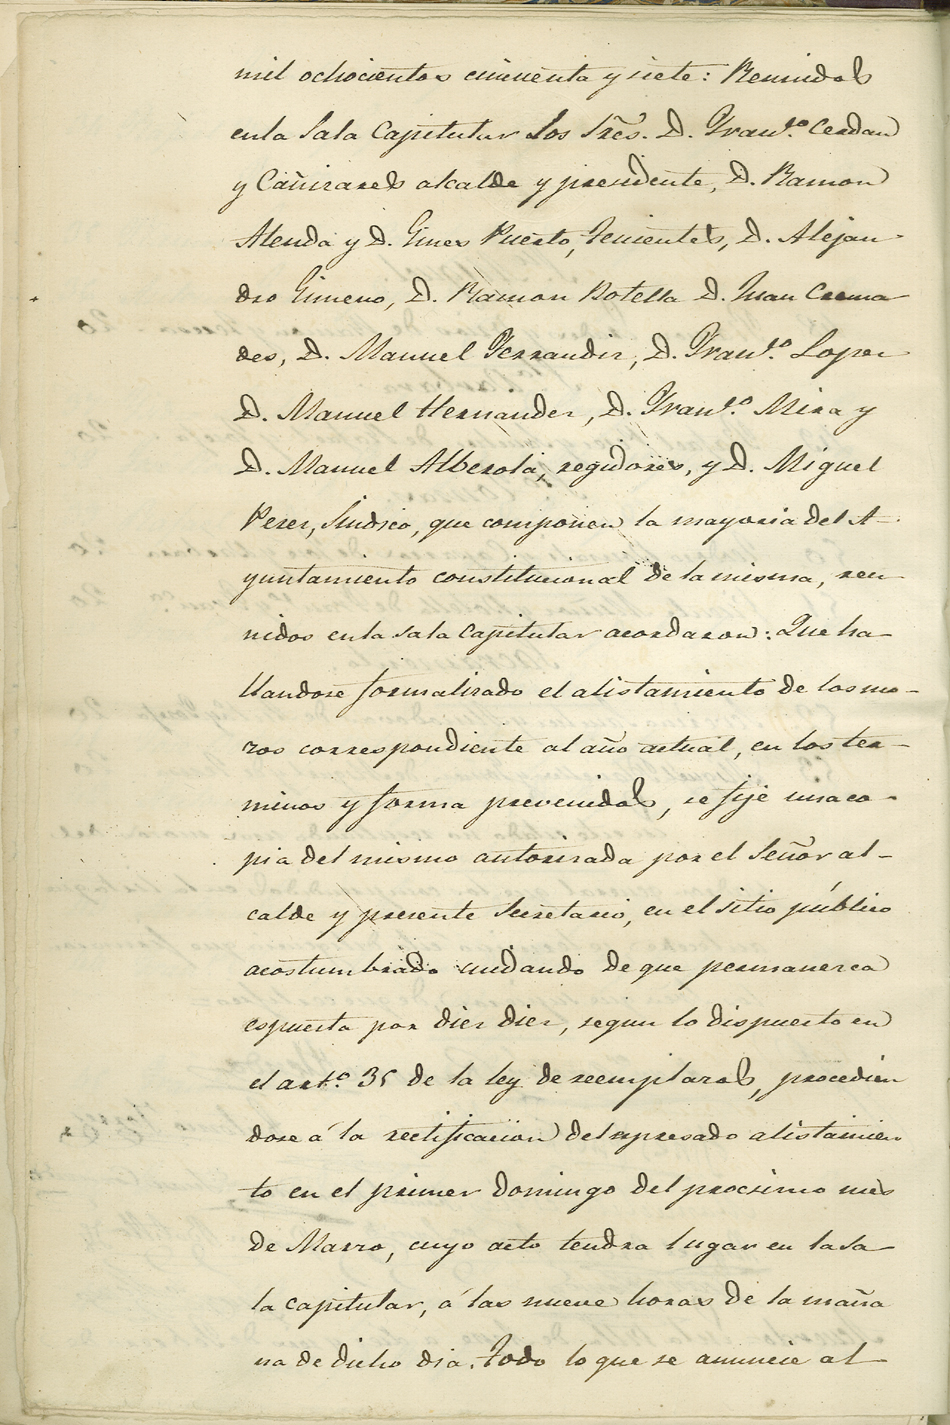 mil ochocientos cincuenta y siete: Reunidos
en la Sala Capitular los Sres. D. Franco. Cerdan
y Cañizares alcalde y presidente, D. Ramon
Alenda y D. Gines Puerto, Tenientes, D. Alejan-
dro Gimeno, D. Ramon Botella D. Juan Crema
des, D. Manuel Ferrandiz, D. Franco. Lopez
D. Manuel Hernandez, D. Franco. Mira y
D. Manuel Alberola, regidores, y D. Miguel
Perez, Sindico, que componen la mayoria del A-
yuntamiento constitucional de la misma, reu-
nidos en la sala Capitular acordaron: Que ha-
llandose formalizado el alistamiento de los mo-
zos correspondiente al año actual, en los ter-
minos y forma prevenidos, se fije una co-
pia del mismo autorizada por el Señor al-
calde y presente Secretario, en el sitio público
acostumbrado cuidando de que permanezca
espuesta por diez diez, segun lo dispuesto en
el arto. 35 de la ley de reemplazos, procedien
dose á la rectificacion del espresado alistamien
to en el primer domingo del procsimo mes
de Marzo, cuyo acto tendra lugar en la sa-
la capitular, á las nueve horas de la maña
na de dicho dia. Todo lo que se anuncie al